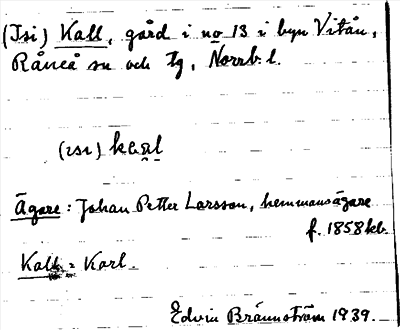 (Isi) Kall, gård i no 13 i byn Vitån,
Råneå sn och tg, Norrb. l.
(ɪsɪ)
Ägare: Johan Petter Larsson, hemmansägare
f. 1858 kb.
Kall = Karl.
Edvin Brännström 1939.